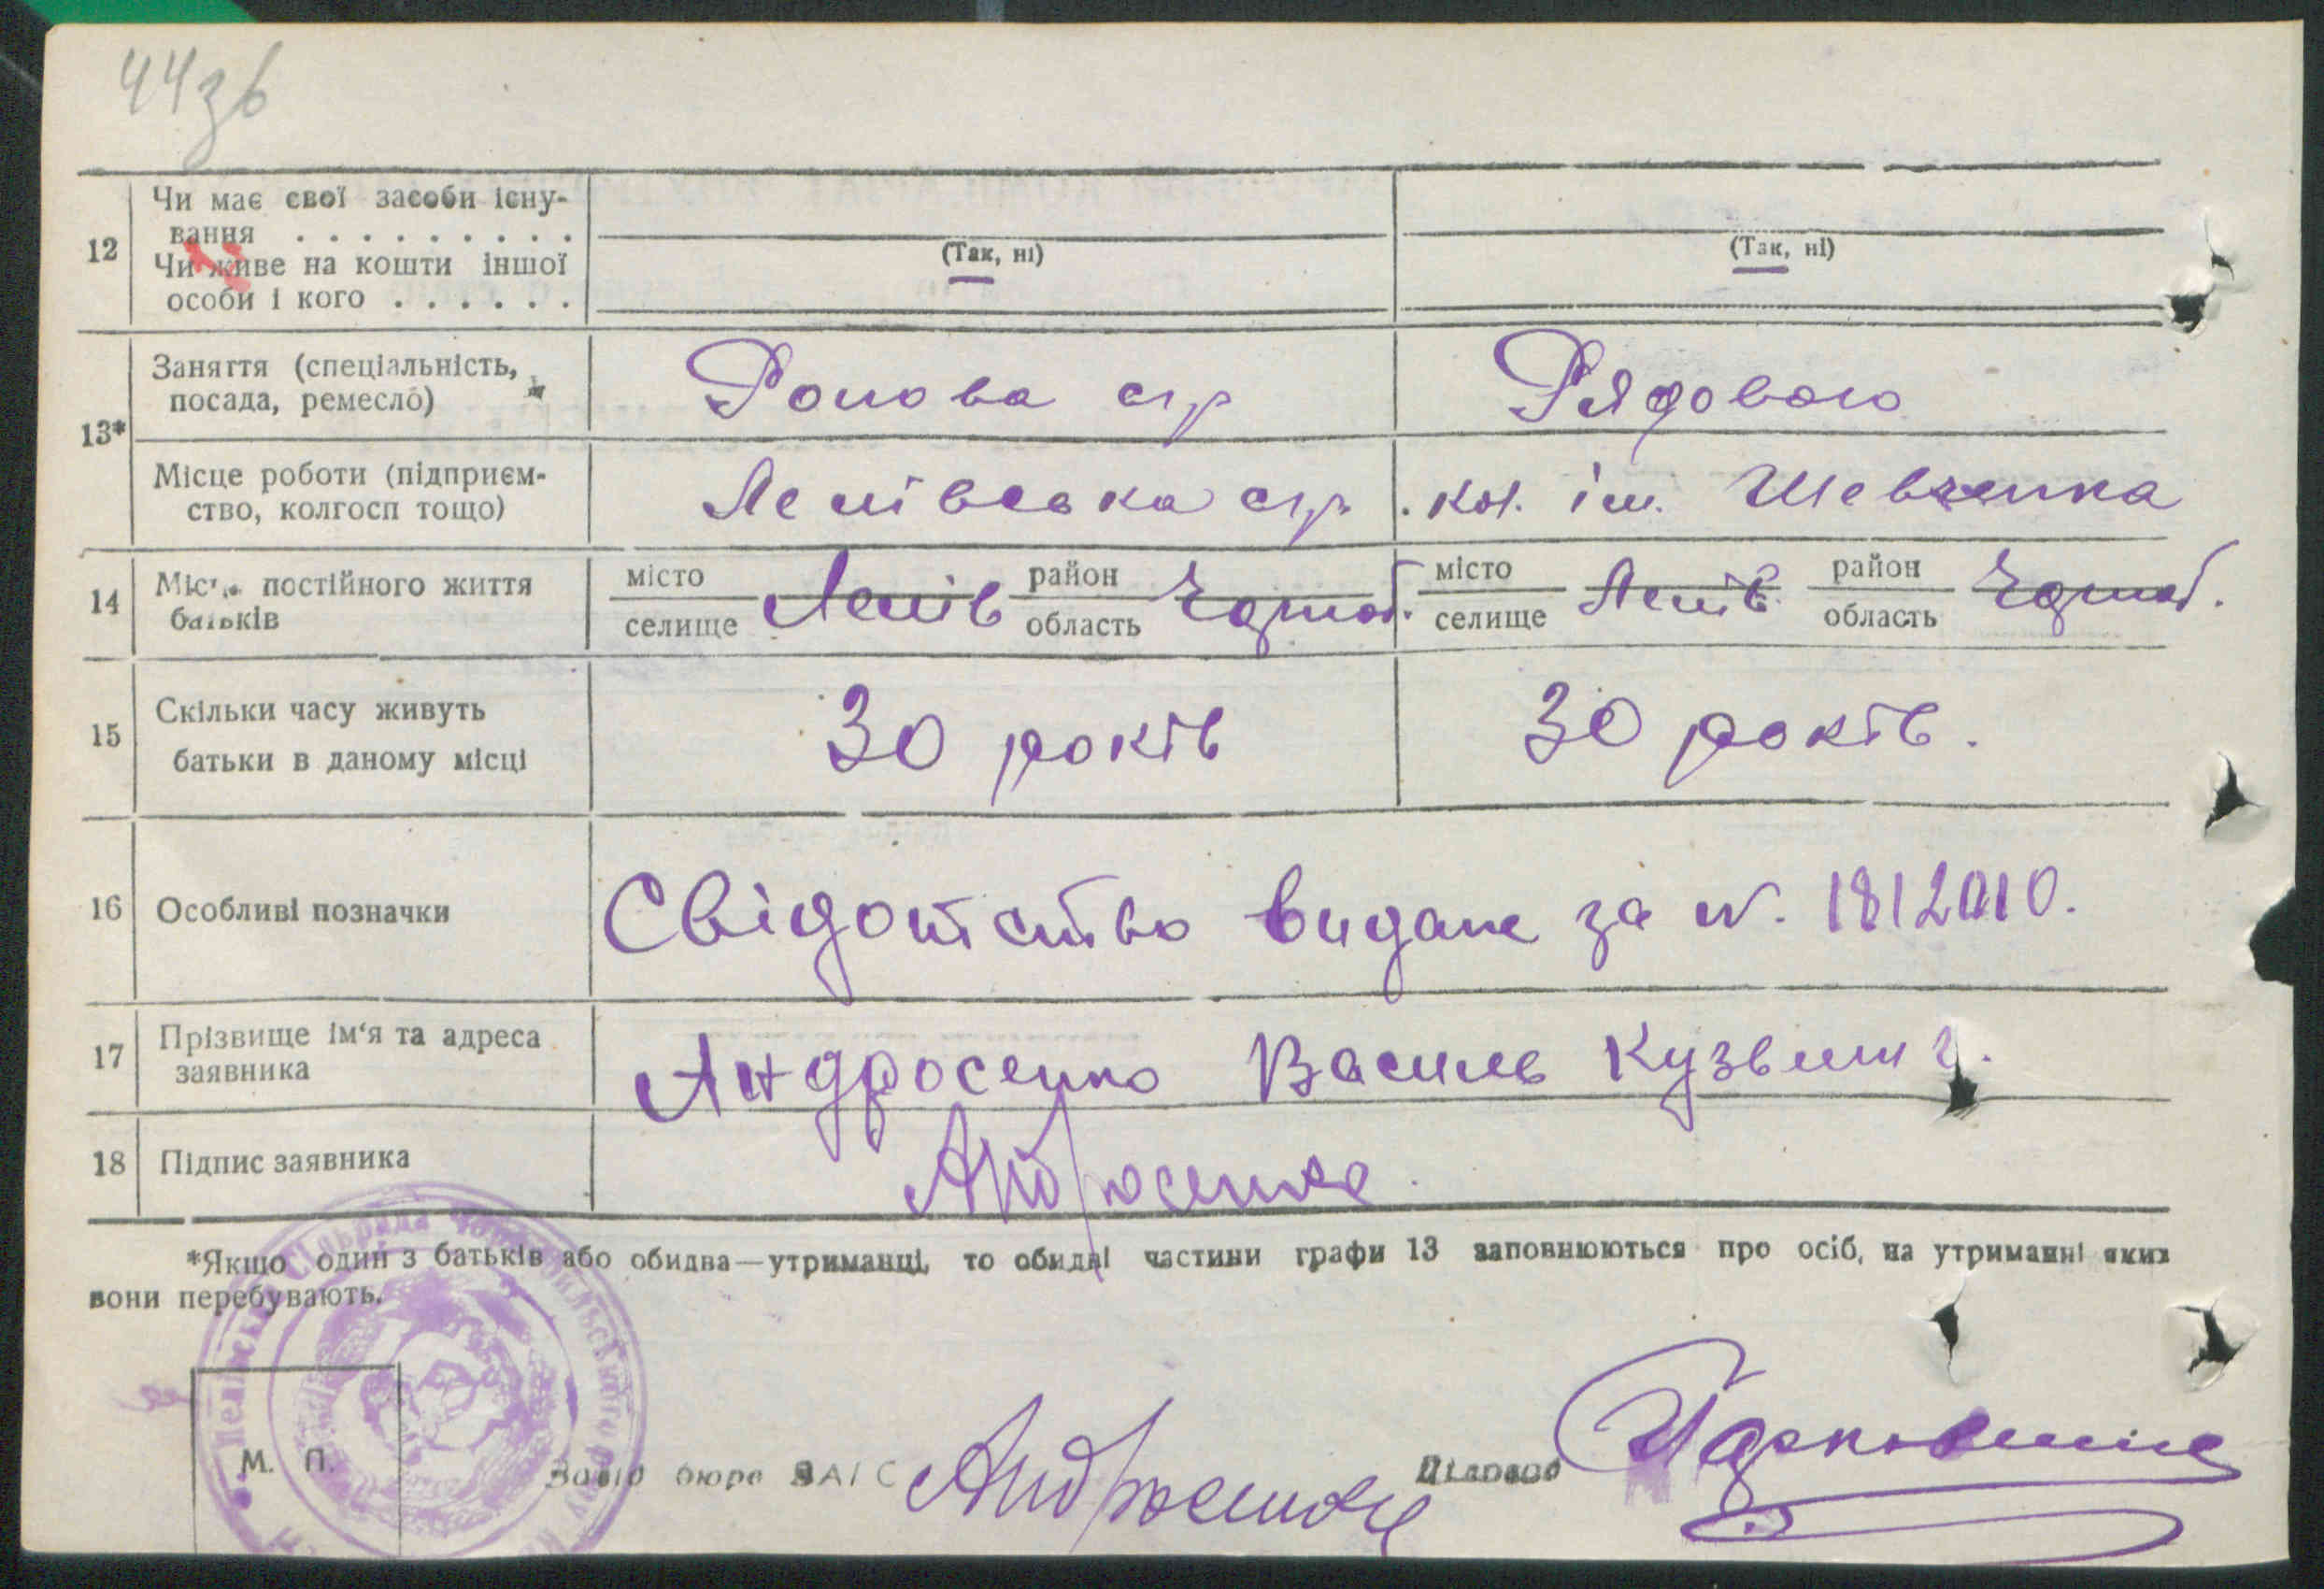 44зв
12 Чи має свої засоби існу-
вання . . . . . . . . . (Так, ні) (Так, ні)
Чи живе на кошти іншої
особи і кого . . . . . .
13* Заняття (спеціальність,
посада, ремесло) Голова с/р Рядового
Місце роботи (підприєм-
ство, колгосп тощо) Лелівська с/р. кол. ім. Шевченка
14 Місце постійного життя
батьків місто селище Лелів район область Чорноб. місто селище Лелів район область Чорноб.
15 Скільки часу живуть
батьки в даному місці 30 років 30 років.
16 Особливі позначки Свідотство видане за N. 1812010.
17 Прізвище ім'я та адреса
заявника Андросенко Василь Кузьмич.
18 Підпис заявника Андросенко.
*Якщо один з батьків або обидва—утриманці, то обидві частини графи 13 заповнюються про осіб, на утриманні яких
вони перебувають.
М. П.
Завід бюро ЗАГС Андросенко Діловод